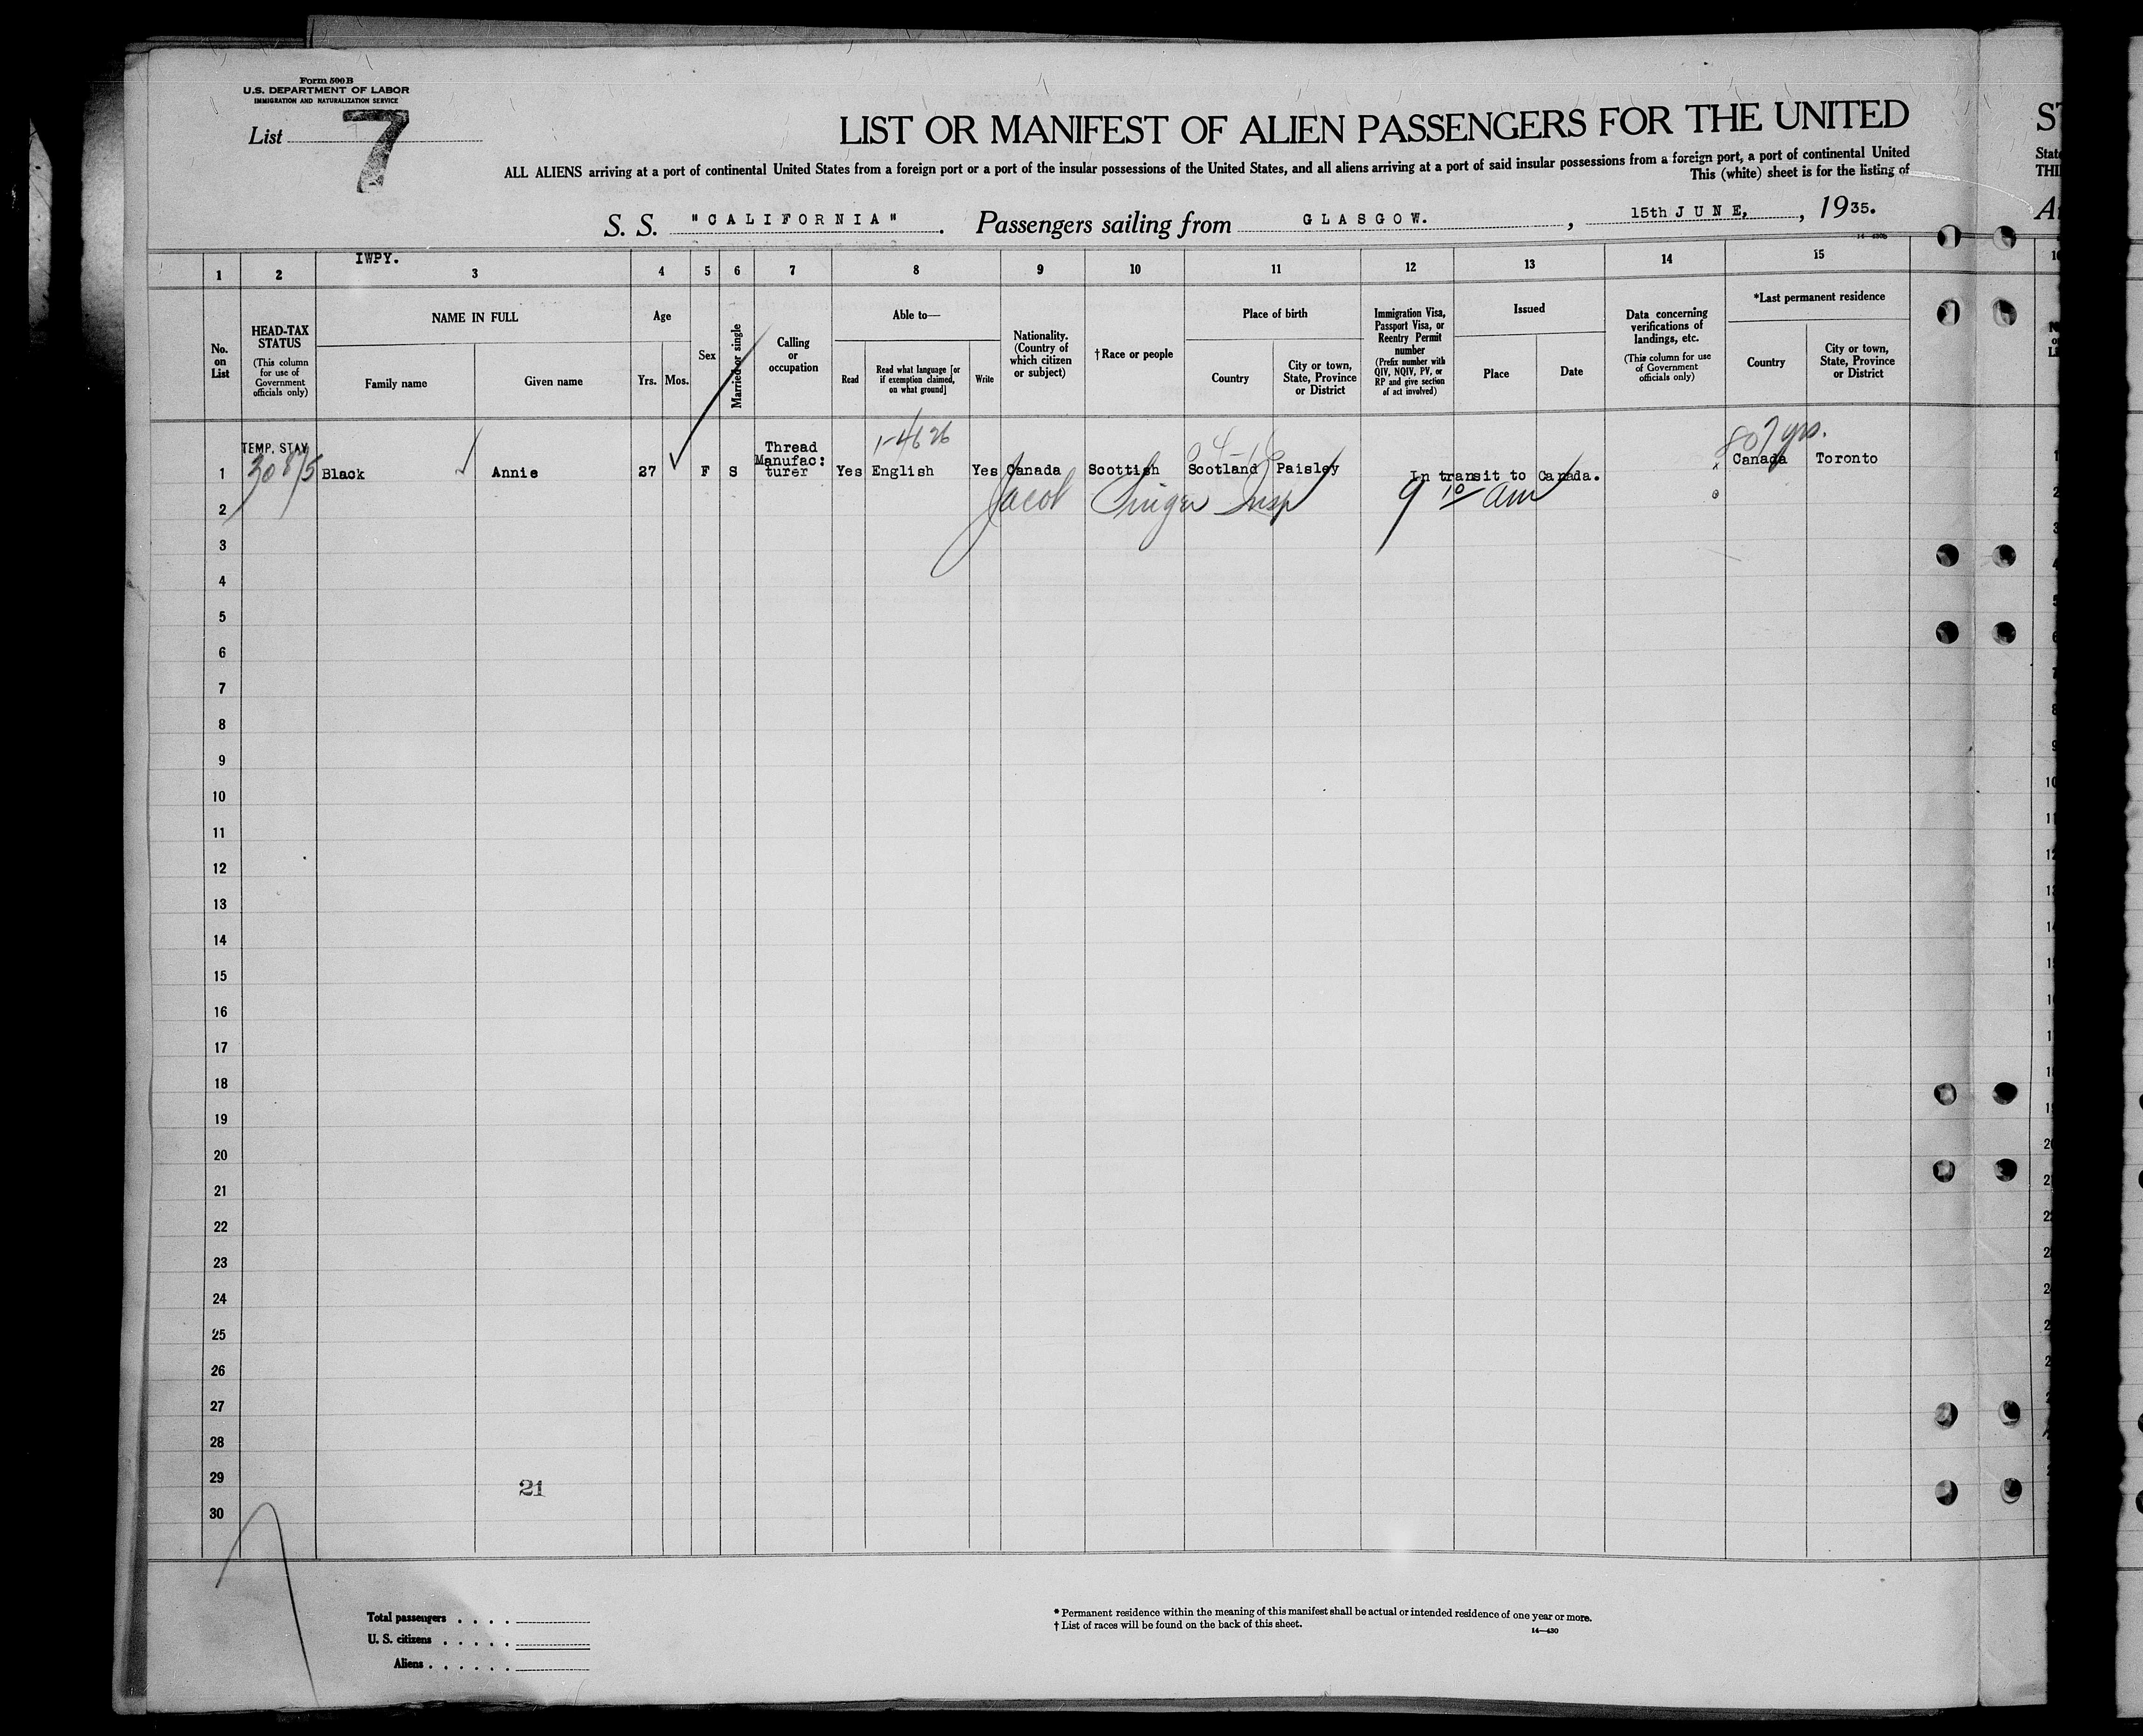 Form 500 B
U.S. DEPARTMENT OF LABOR
IMMIGRATION AND NATURALIZATION SERVICE
List 7
LIST OR MANIFEST OF ALIEN PASSENGERS FOR THE UNITED
ALL ALIENS arriving at a port of continental United States from a foreign port or a port of the insular possessions of the United States, and all aliens arriving at a port of said insular possessions from a foreign port, a port of continental United
This (white) sheet is for the listing of
S. S. "CALIFORNIA". Passengers sailing from GLASGOW. , 15th JUNE, , 1935.
IWPY.
1 2 3 4 5 6 7 8 9 10 11 12 13 14 15
No. on List
HEAD-TAX STATUS (This column for use of Government officials only)
NAME IN FULL
Family name
Given name
Age
Yrs.
Mos.
Sex
Married or single
Calling or occupation
Able to—
Read
Read what language [or if exemption claimed, on what ground]
Write
Nationality. (Country of which citizen or subject)
†Race or people
Place of birth
Country
City or town, State, Province or District
Immigration Visa, Passport Visa, or Reentry Permit number (Prefix number with QIV, NQIV, PV, or RP and give section of act involved)
Issued
Place
Date
Data concerning verifications of landings, etc. (This column for use of Government officials only)
*Last permanent residence
Country
City or town, State, Province or District
TEMP. STAY
1 Black Annie 27 F S Thread Manufac:turer Yes English Yes Canada Scottish Scotland Paisley In transit to Canada. Canada Toronto
Jacob Singer Insp 9 10 am
2
3
4
5
6
7
8
9
10
11
12
13
14
15
16
17
18
19
20
21
22
23
24
25
26
27
28
29
21
30
Total passengers
U. S. citizens
Aliens
* Permanent residence within the meaning of this manifest shall be actual or intended residence of one year or more.
† List of races will be found on the back of this sheet.
14—430